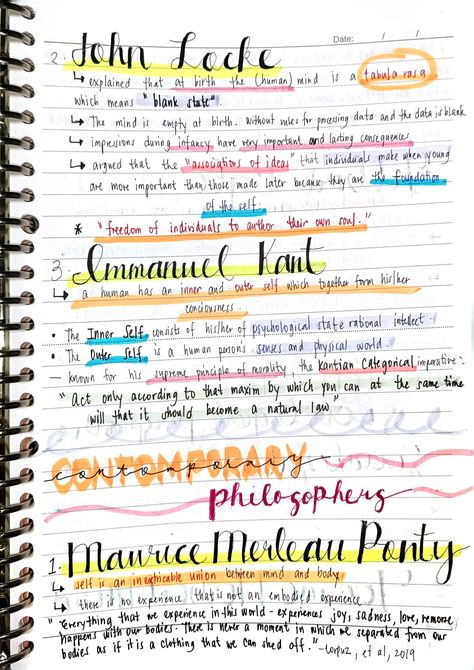 Date: / /
2. John Locke
↳ explained that at birth the (human) mind is a tabula rasa
which means "blank state".
↳ The mind is empty at birth. Without rules for processing data and the data is blank
↳ impressions during infancy have very important and lasting consequences
↳ argued that the "associations of ideas" that individuals make when young
are more important than those made later because they are the foundation
of the self.
* "freedom of individuals to author their own soul."
3. Immanuel Kant
↳ a human has an inner and outer self which together form his/her
conciousness.
• The Inner Self consists of his/her of psychological state rational intellect.
• The Outer Self is a human person's senses and physical world.
- known for his supreme principle of morality, the Kantian Categorical imperative:
"Act only according to that maxim by which you can at the same time
will that it should become a natural law"
CONTOMPORARY
contomporary
philosophers
1. Maurice Merleau Ponty
↳ self is an inextricable union between mind and body
↳ there is no experience that is not an embodied experience
"Everything that we experience in this world - experiences joy, sadness, love, remorse,
happens with our bodies. There is never a moment in which we separated from our
bodies as if it is a clothing that we can shed off." -Corpuz, et al, 2019